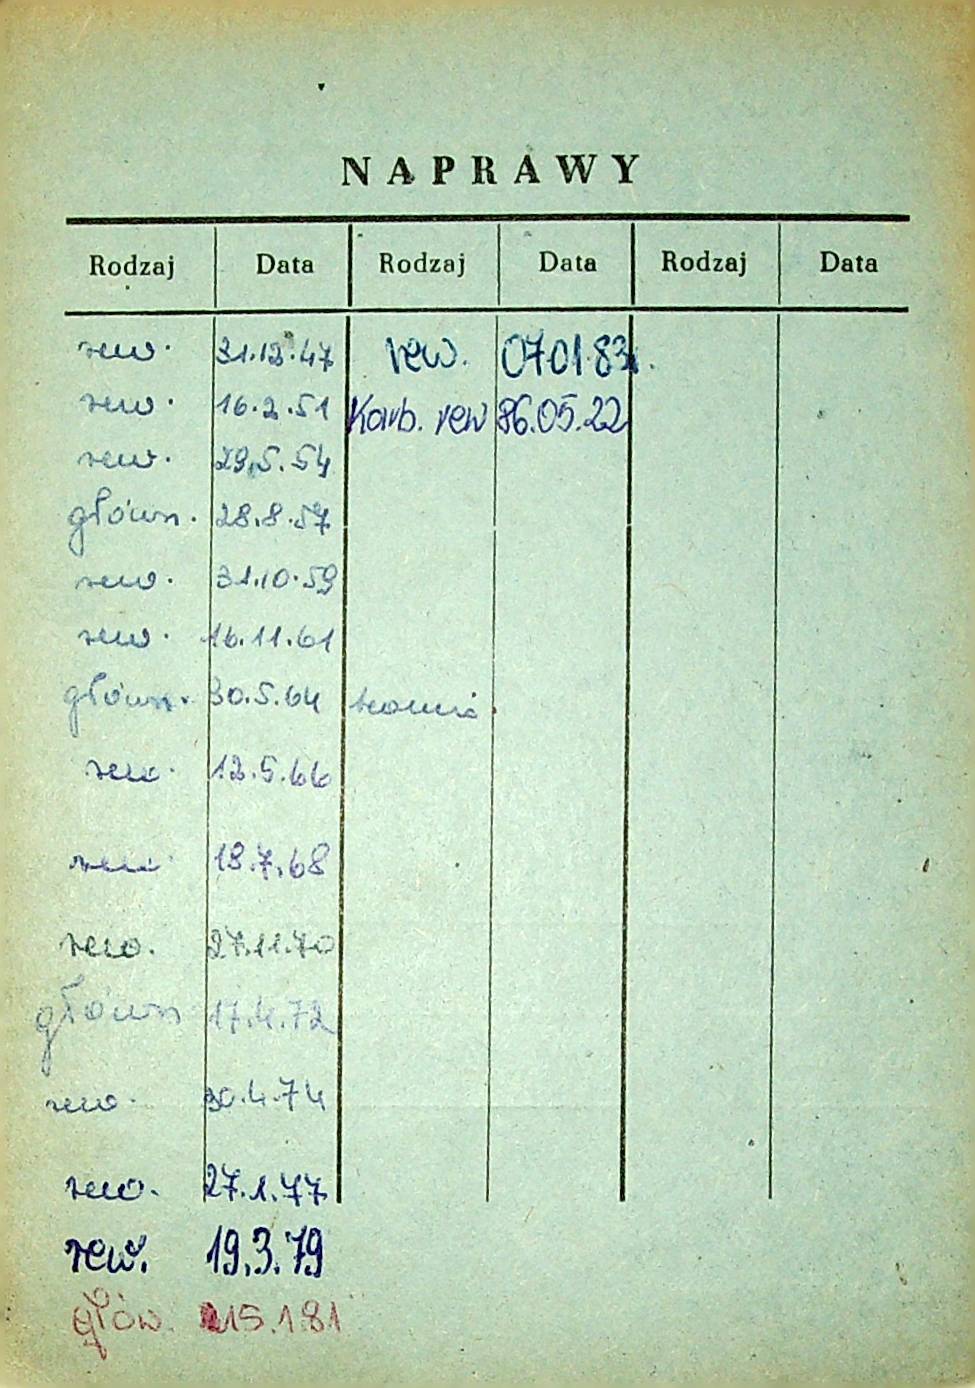 NAPRAWY
Rodzaj Data Rodzaj Data Rodzaj Data
rew. 31.12.47 rew. 07.01.83.
rew. 16.2.51 Karb. rew 86.05.22
rew. 29.5.54
główn. 28.8.57
rew. 31.10.59
rew. 16.11.61
główn. 30.5.64
rew. 12.5.66
rew. 18.7.68
rew. 27.11.70
główn 17.4.72
rew. 30.4.74
rew. 27.1.77
rew. 19.3.79
głów. 15.1.81